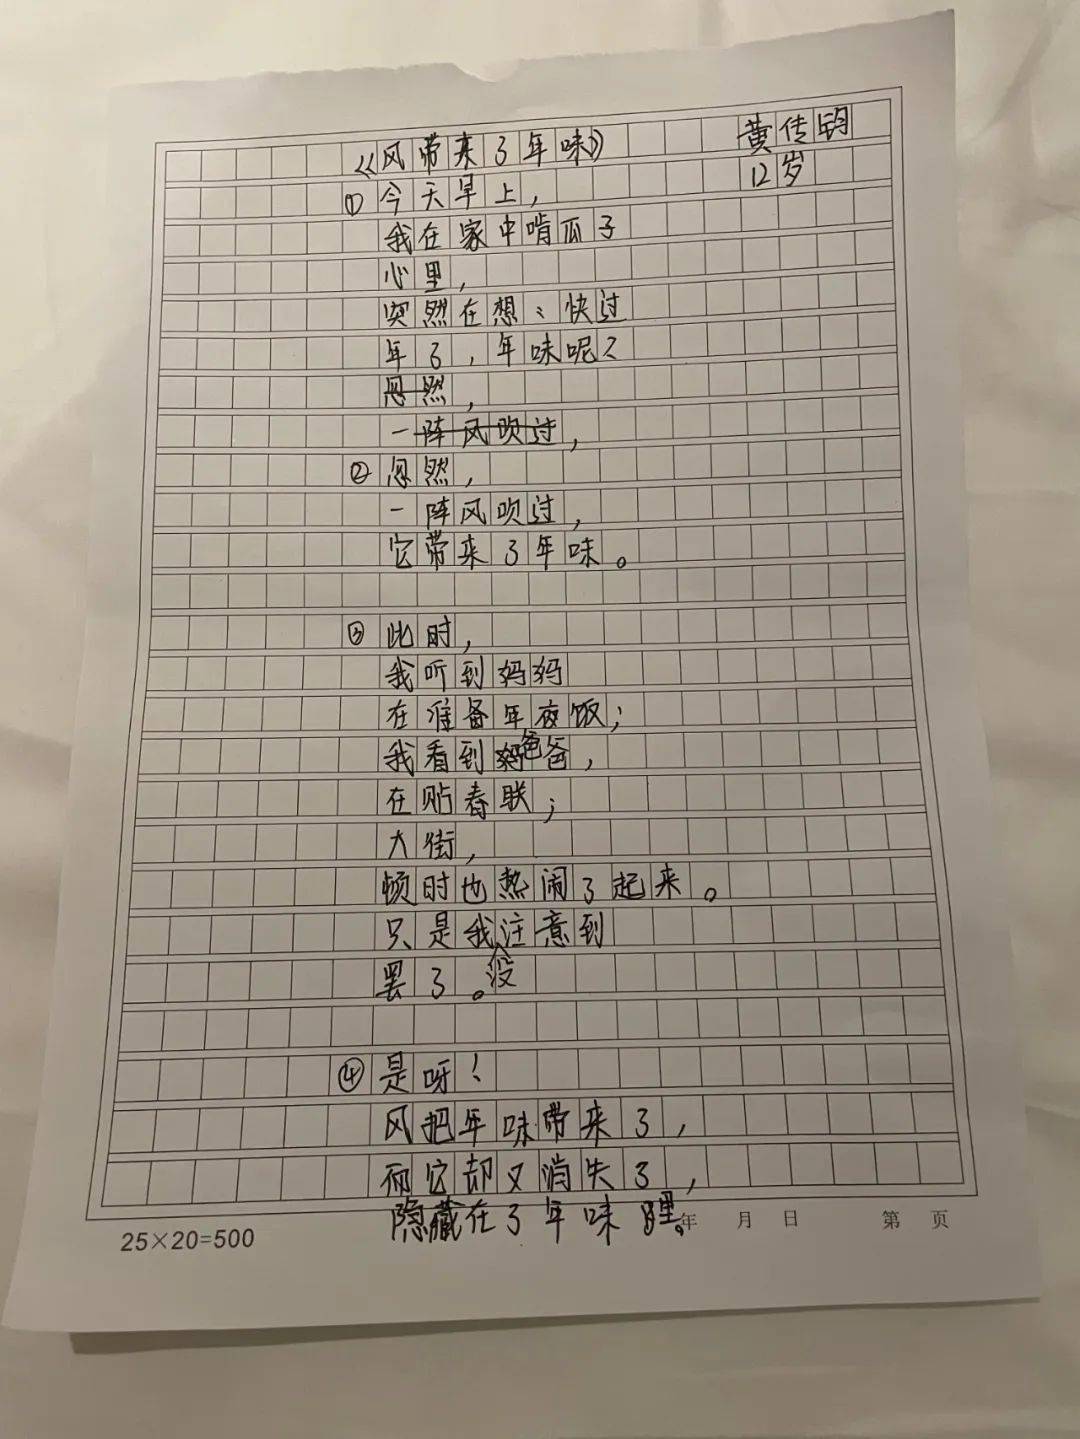 《风带来了年味》 黄传钧
12岁
①今天早上，
我在家中啃瓜子
心里，
突然在想：快过
年了，年味呢？
忽然，
一阵风吹过，
②忽然，
一阵风吹过，
它带来了年味。
③此时，
我听到妈妈
在准备年夜饭；
我看到爸爸，
在贴春联；
大街，
顿时也热闹了起来。
只是我没注意到
罢了。
④是呀！
风把年味带来了，
而它却又消失了，
隐藏在了年味里。
25×20=500 年 月 日 第 页